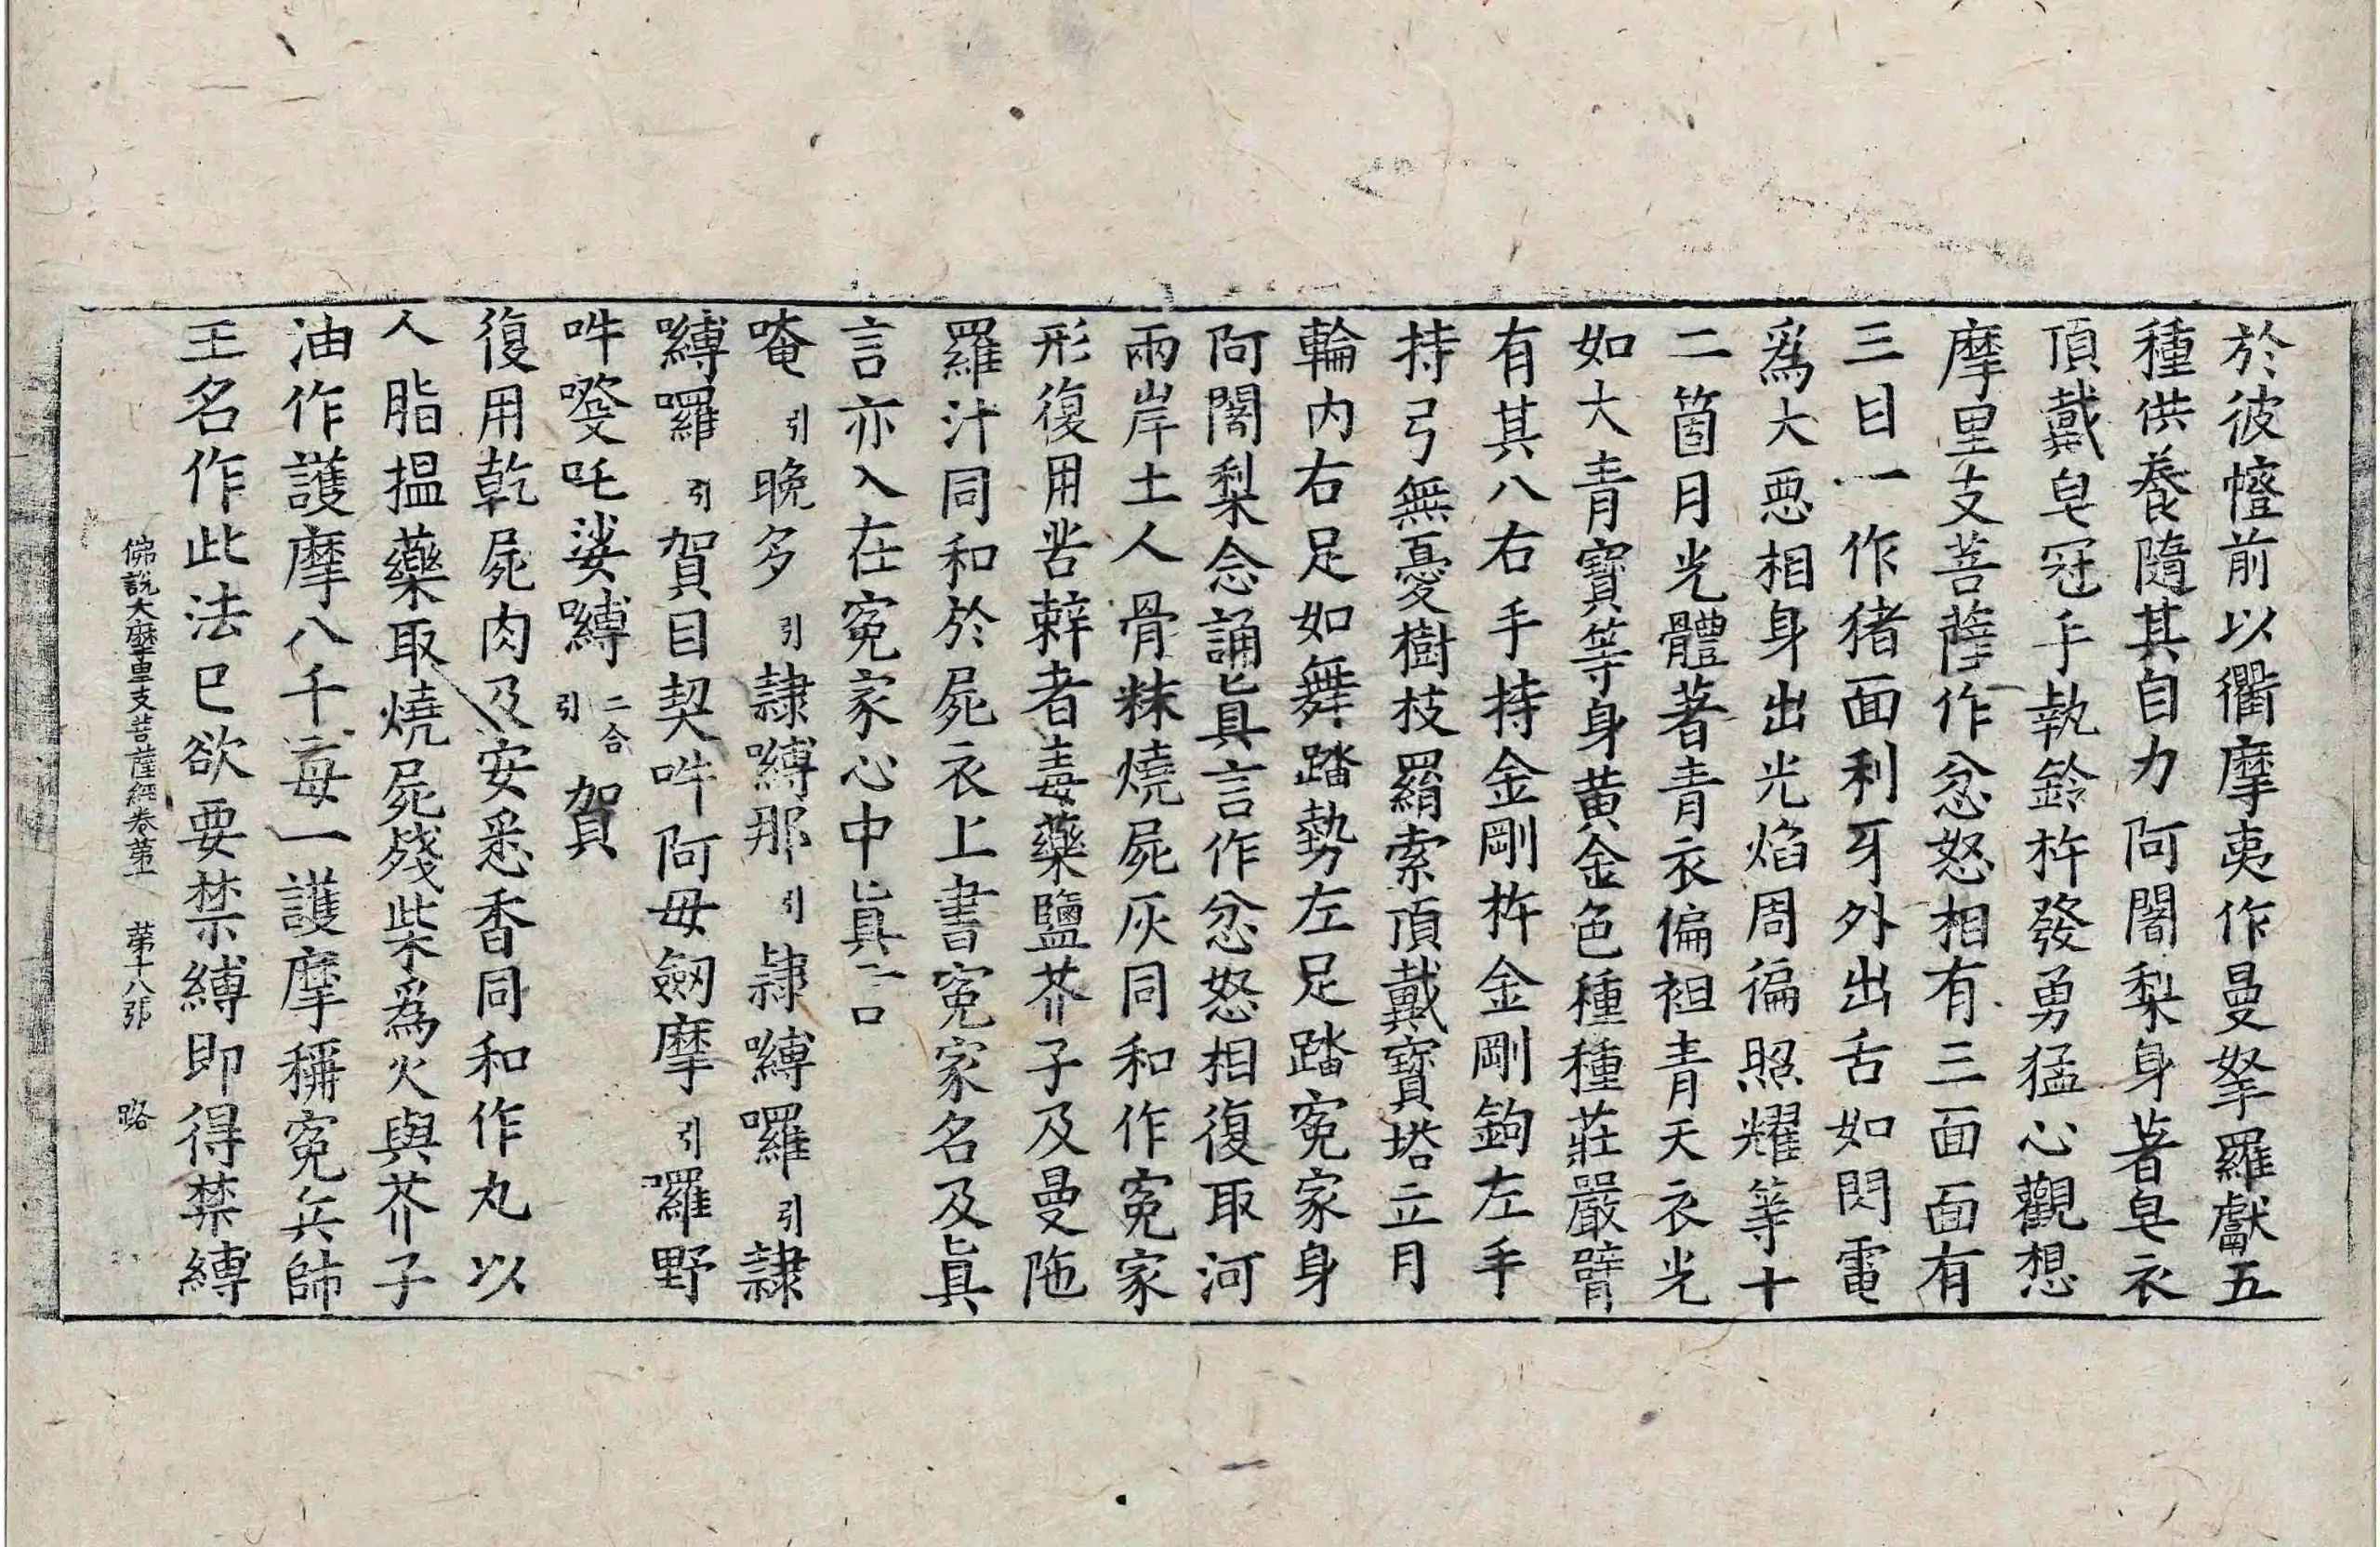 於彼幢前以衢摩夷作曼拏羅獻五
種供養隨其自力阿闍梨身著皂衣
頂戴皂冠手執鈴杵發勇猛心觀想
摩里支菩薩作忿怒相有三面面有
三目一作猪面利牙外出舌如閃電
爲大惡相身出光焰周徧照耀等十
二箇月光體著青衣偏袒青天衣光
如大青寶等身黃金色種種莊嚴臂
有其八右手持金剛杵金剛鉤左手
持弓無憂樹枝羂索頂戴寶塔立月
輪内右足如舞踏勢左足踏寃家身
阿闍梨念誦眞言作忿怒相復取河
兩岸土人骨粖燒屍灰同和作寃家
形復用苦辢者毒藥鹽芥子及曼陁
羅汁同和於屍衣上書寃家名及眞
言亦入在寃家心中眞言曰
唵引晚多引隷嚩那引隷嚩囉引隷
嚩囉引賀目契吽阿毋劒摩引囉野
吽發吒娑嚩二合引賀
復用乾屍肉及安悉香同和作丸以
人脂揾藥取燒屍殘柴爲火與芥子
油作護摩八千毎一護摩稱寃兵師
王名作此法已欲要禁縛即得禁縛
佛說大摩里支菩薩經卷第五 第十八張 路